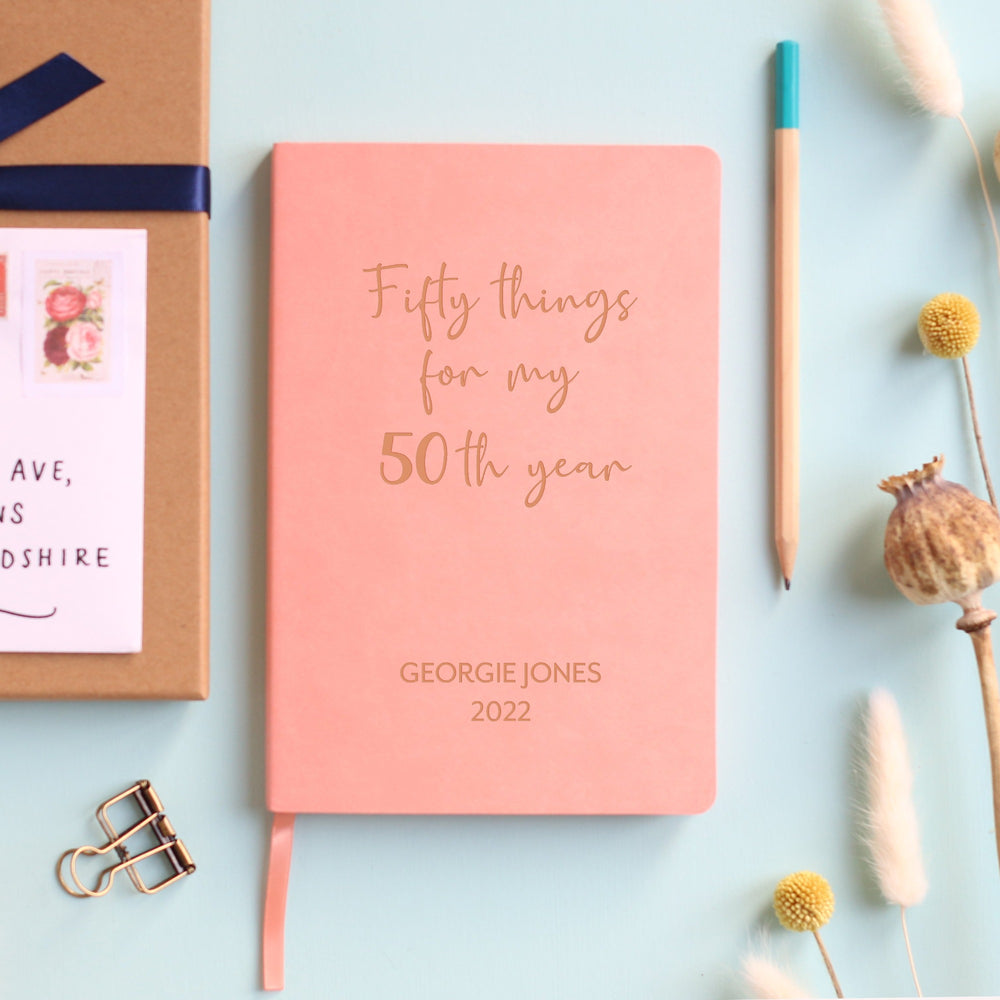 Fifty things
for my
50th year
GEORGIE JONES
2022
AVE,
NS
DSHIRE